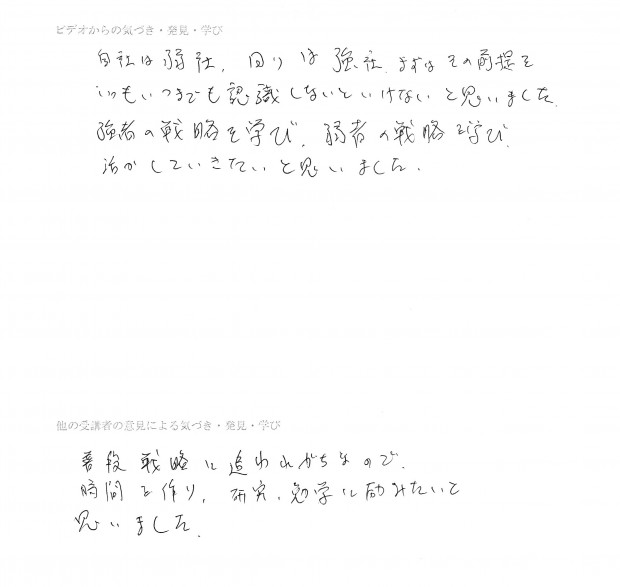 ビデオからの気づき・発見・学び
自社は弱社、回りは強社、まずはその前提を
いつもいつまでも認識しないといけないと思いました。
強者の戦略を学び、弱者の戦略を学び、
活かしていきたいと思いました。
他の受講者の意見による気づき・発見・学び
普段戦略に追われがちなので、
時間を作り、研究、勉学に励みたいと
思いました。